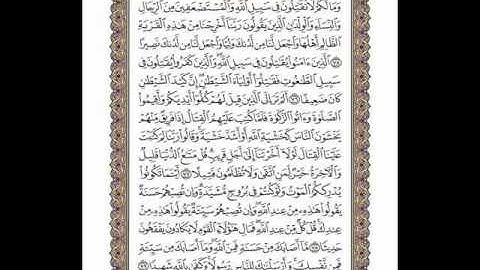 وَمَا لَكُمْ لَا تُقَاتِلُونَ فِي سَبِيلِ اللَّهِ وَالْمُسْتَضْعَفِينَ مِنَ الرِّجَالِ
وَالنِّسَاءِ وَالْوِلْدَانِ الَّذِينَ يَقُولُونَ رَبَّنَا أَخْرِجْنَا مِنْ هَٰذِهِ الْقَرْيَةِ
الظَّالِمِ أَهْلُهَا وَاجْعَل لَّنَا مِن لَّدُنكَ وَلِيًّا وَاجْعَل لَّنَا مِن لَّدُنكَ نَصِيرًا
٧٥ الَّذِينَ آمَنُوا يُقَاتِلُونَ فِي سَبِيلِ اللَّهِ وَالَّذِينَ كَفَرُوا يُقَاتِلُونَ فِي
سَبِيلِ الطَّاغُوتِ فَقَاتِلُوا أَوْلِيَاءَ الشَّيْطَانِ إِنَّ كَيْدَ الشَّيْطَانِ
كَانَ ضَعِيفًا ٧٦ أَلَمْ تَرَ إِلَى الَّذِينَ قِيلَ لَهُمْ كُفُّوا أَيْدِيَكُمْ وَأَقِيمُوا
الصَّلَاةَ وَآتُوا الزَّكَاةَ فَلَمَّا كُتِبَ عَلَيْهِمُ الْقِتَالُ إِذَا فَرِيقٌ مِّنْهُمْ
يَخْشَوْنَ النَّاسَ كَخَشْيَةِ اللَّهِ أَوْ أَشَدَّ خَشْيَةً وَقَالُوا رَبَّنَا لِمَ كَتَبْتَ
عَلَيْنَا الْقِتَالَ لَوْلَا أَخَّرْتَنَا إِلَىٰ أَجَلٍ قَرِيبٍ قُلْ مَتَاعُ الدُّنْيَا قَلِيلٌ
وَالْآخِرَةُ خَيْرٌ لِّمَنِ اتَّقَىٰ وَلَا تُظْلَمُونَ فَتِيلًا ٧٧ أَيْنَمَا تَكُونُوا
يُدْرِككُّمُ الْمَوْتُ وَلَوْ كُنتُمْ فِي بُرُوجٍ مُّشَيَّدَةٍ وَإِن تُصِبْهُمْ حَسَنَةٌ
يَقُولُوا هَٰذِهِ مِنْ عِندِ اللَّهِ وَإِن تُصِبْهُمْ سَيِّئَةٌ يَقُولُوا هَٰذِهِ مِنْ
عِندِكَ قُلْ كُلٌّ مِّنْ عِندِ اللَّهِ فَمَالِ هَٰؤُلَاءِ الْقَوْمِ لَا يَكَادُونَ يَفْقَهُونَ
حَدِيثًا ٧٨ مَّا أَصَابَكَ مِنْ حَسَنَةٍ فَمِنَ اللَّهِ وَمَا أَصَابَكَ مِن سَيِّئَةٍ
فَمِن نَّفْسِكَ وَأَرْسَلْنَاكَ لِلنَّاسِ رَسُولًا وَكَفَىٰ بِاللَّهِ شَهِيدًا ٧٩